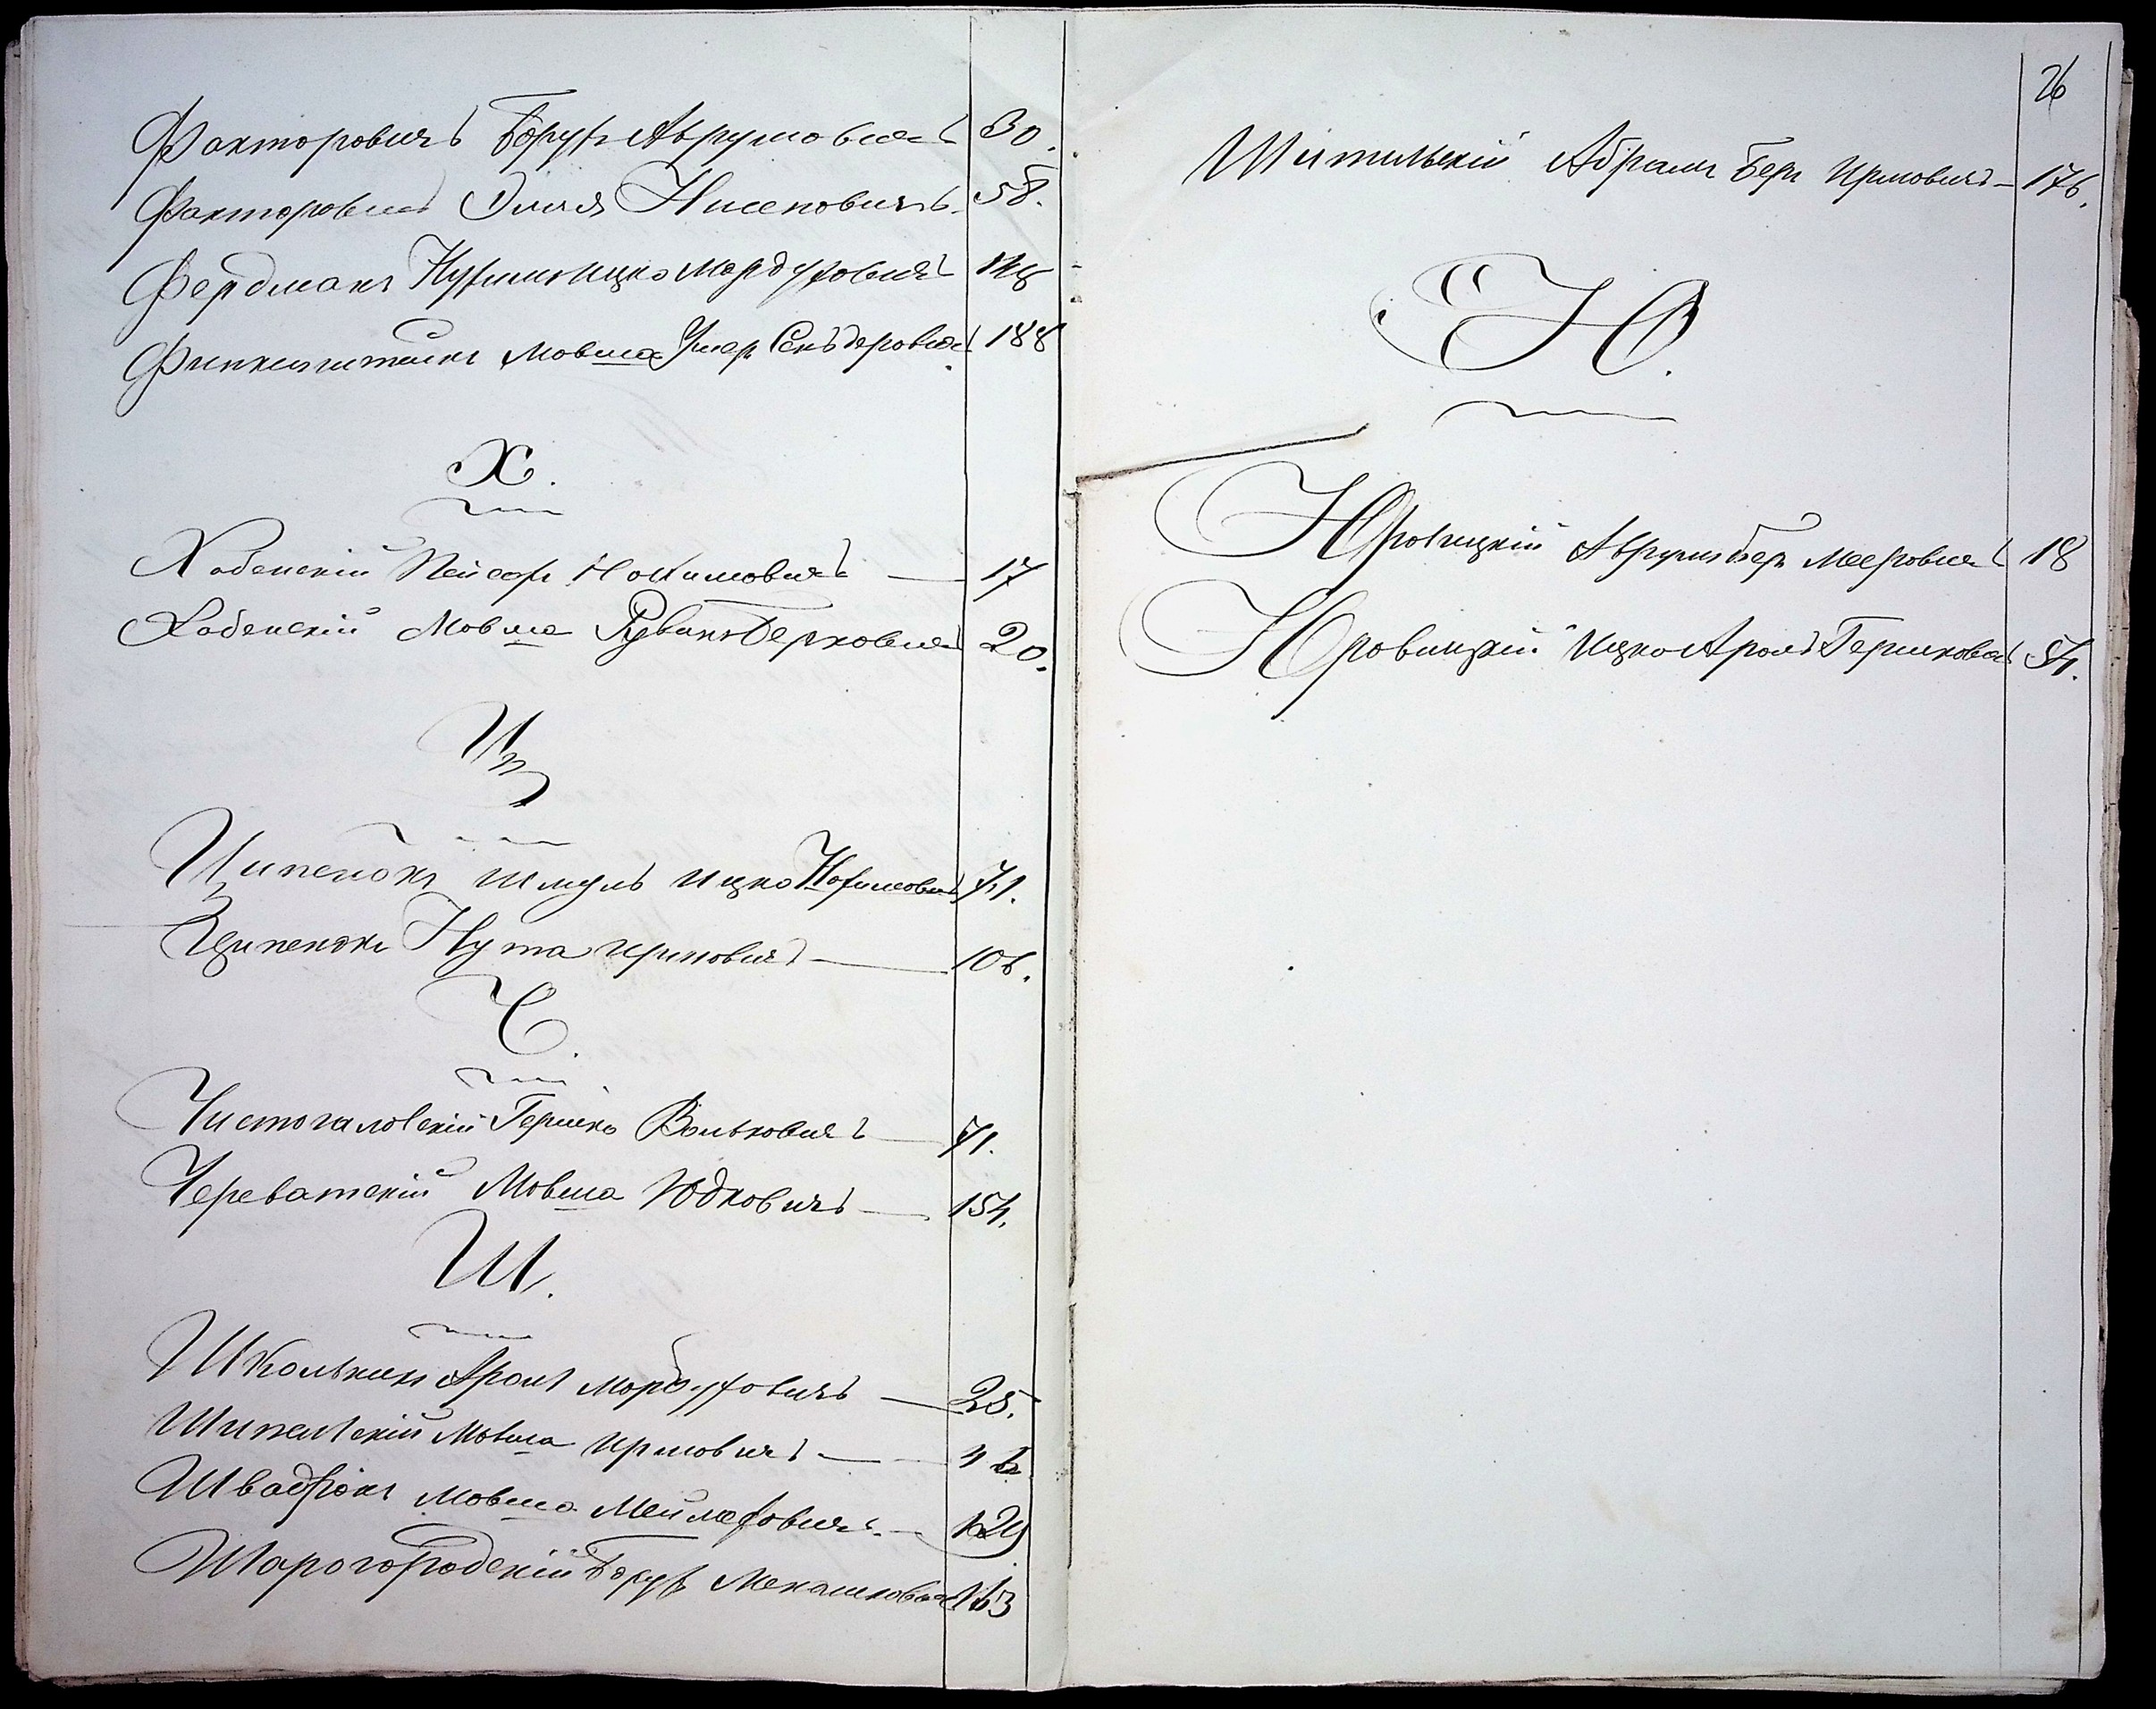 Факторовичъ Борухъ Аврумовичъ 30.
Факторовичъ Эмля Нисеновичъ 58.
Фердманъ Нухимъ Ицко Мордуховичъ
Финкильштейнъ Мовша Умер Сендеровичъ 188
Х.
Хабенскій Пейсахъ Нохимовичъ 17
Хабенскій Мовша Рувинъ Берковичъ 20.
Ц
Ципенюкъ Шмуль Ицко Нохимовичъ 71.
Ципенюкъ Нута Ирмовичъ 106.
Ч.
Чистогаловскій Гершко Вольковичъ 71.
Череватскій Мовша Юдковичъ 154.
Ш.
Школьникъ Аронъ Мордуховичъ 25.
Шипельскій Мовша Ирмовичъ 46
Швадронъ Мовша Мейлаховичъ 129
Шарогородскій Борухъ Менашковичъ 163
26
Шипильскій Абрамъ Беръ Ирмовичъ 176.
Ю.
Юровицкій Аврумъ Беръ Мееровичъ 18
Юровицкій Ицко Аронъ Гершковичъ 54.